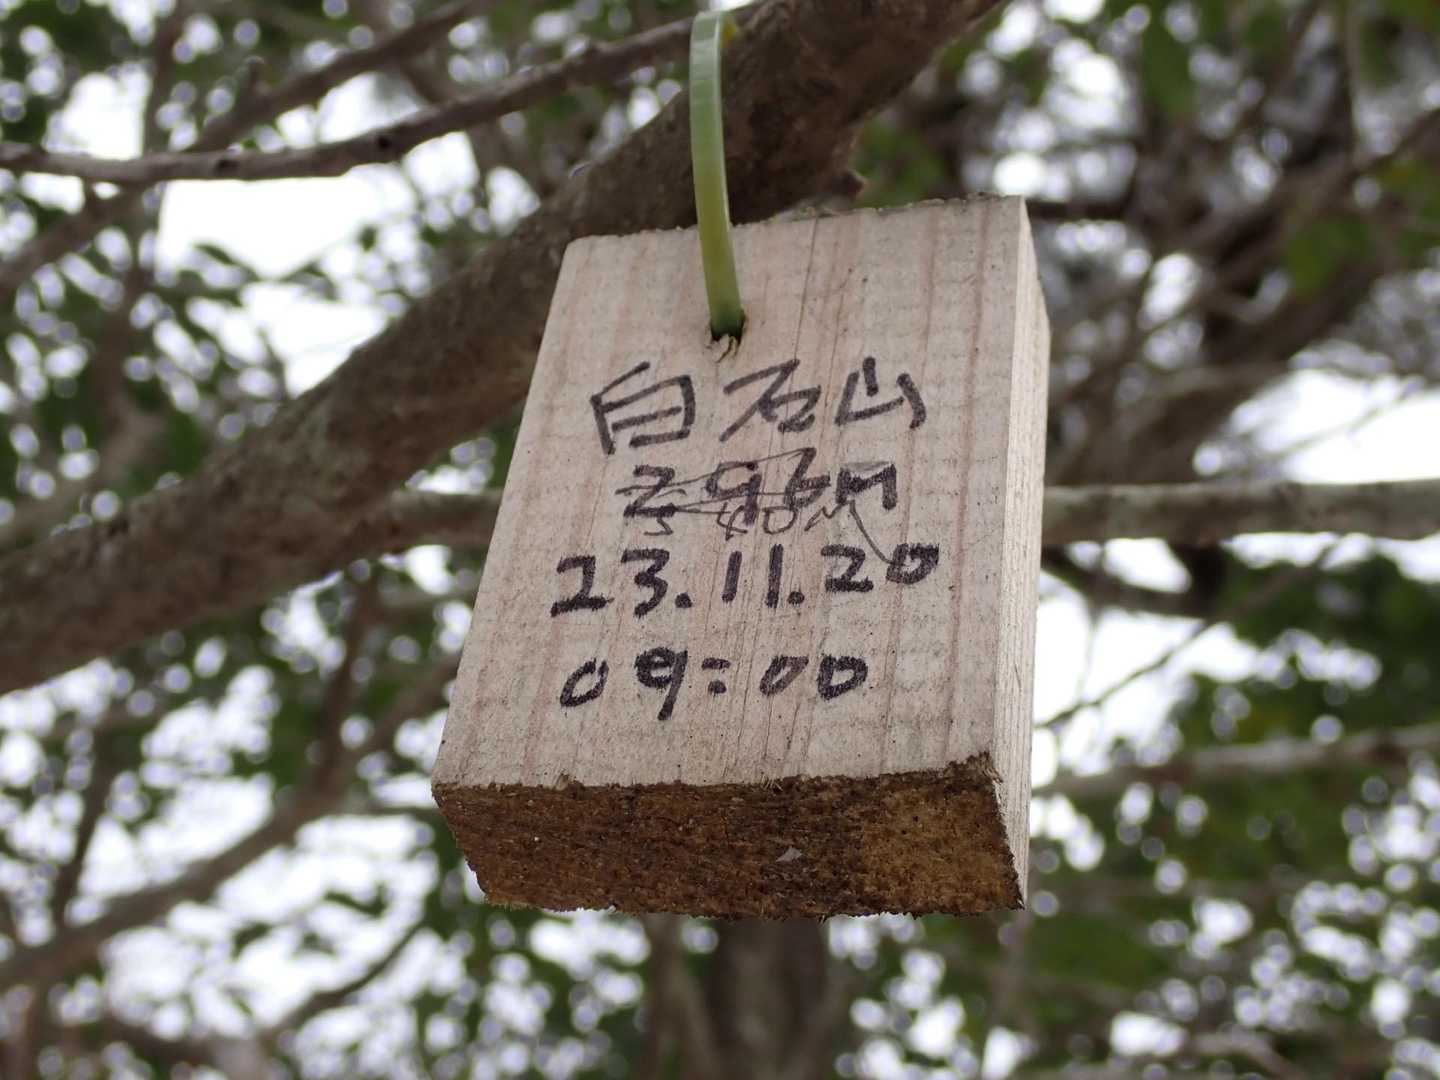 白石山
296m
540M
23.11.20
09:00